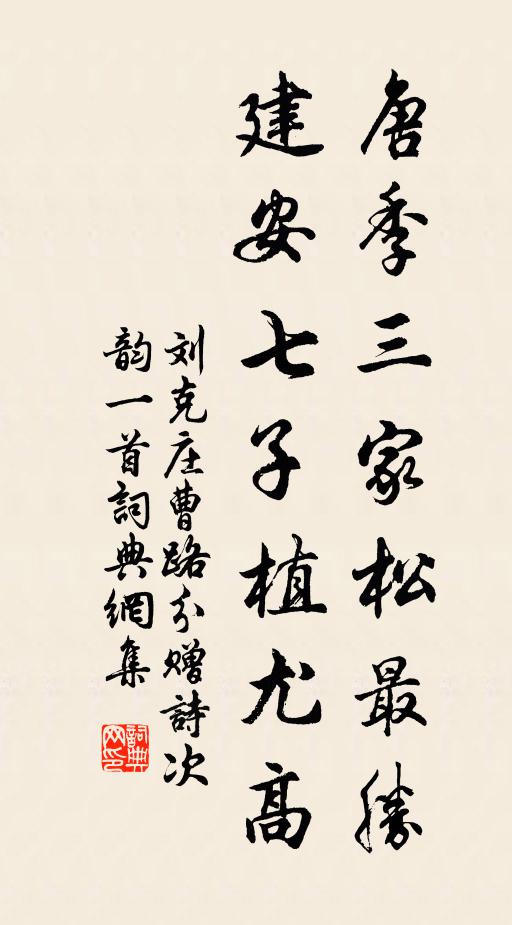 唐季三家松最勝
建安七子植尤高
刘克庄曹路分赠詩次
韵一首詞典網集
詞典网印